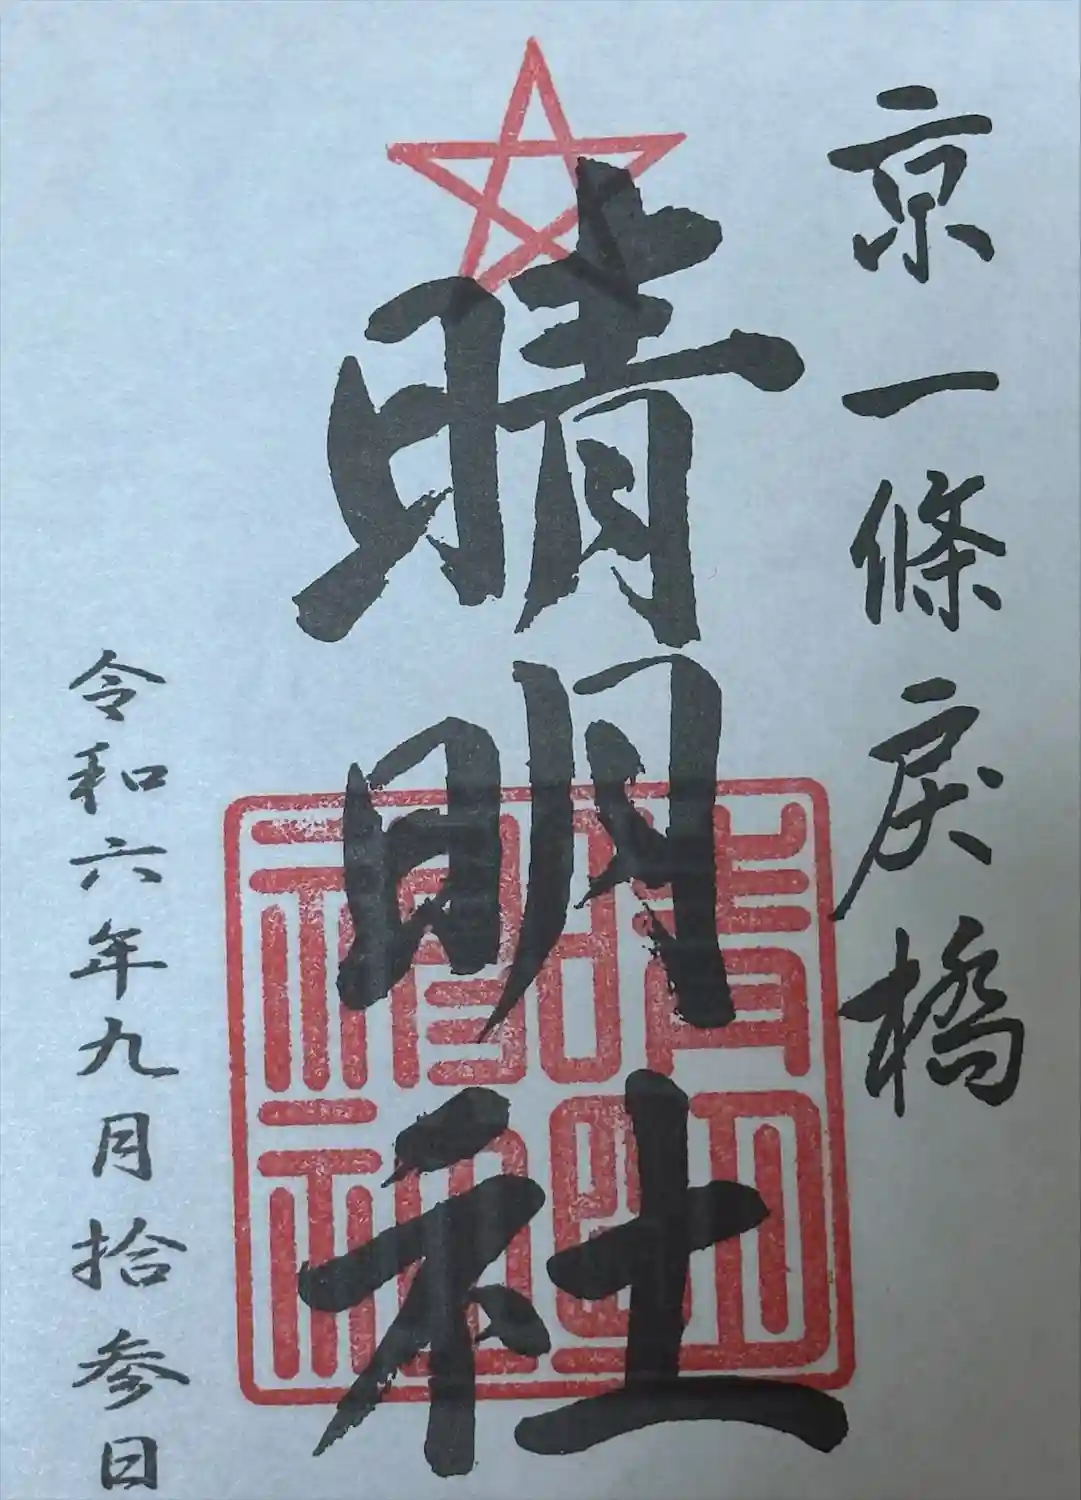 京一條戻橋
晴明社
晴明神社
令和六年九月拾参日